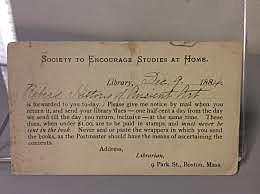 SOCIETY TO ENCOURAGE STUDIES AT HOME.
Library, Dec. 9 1884.
History of Ancient Art
is forwarded to you to-day. Please give me notice by mail when you
return it, and send your library dues — one-half cent a day from the day
we send till the day you return, inclusive — at the same time. These
dues, when under $1.00, are to be paid in stamps and must never be
be sent in the book. Never seal or paste the wrappers in which you send
the books, as the Postmaster should have the means of ascertaining the
contents.
Address,
Librarian,
9 Park St., Boston, Mass.